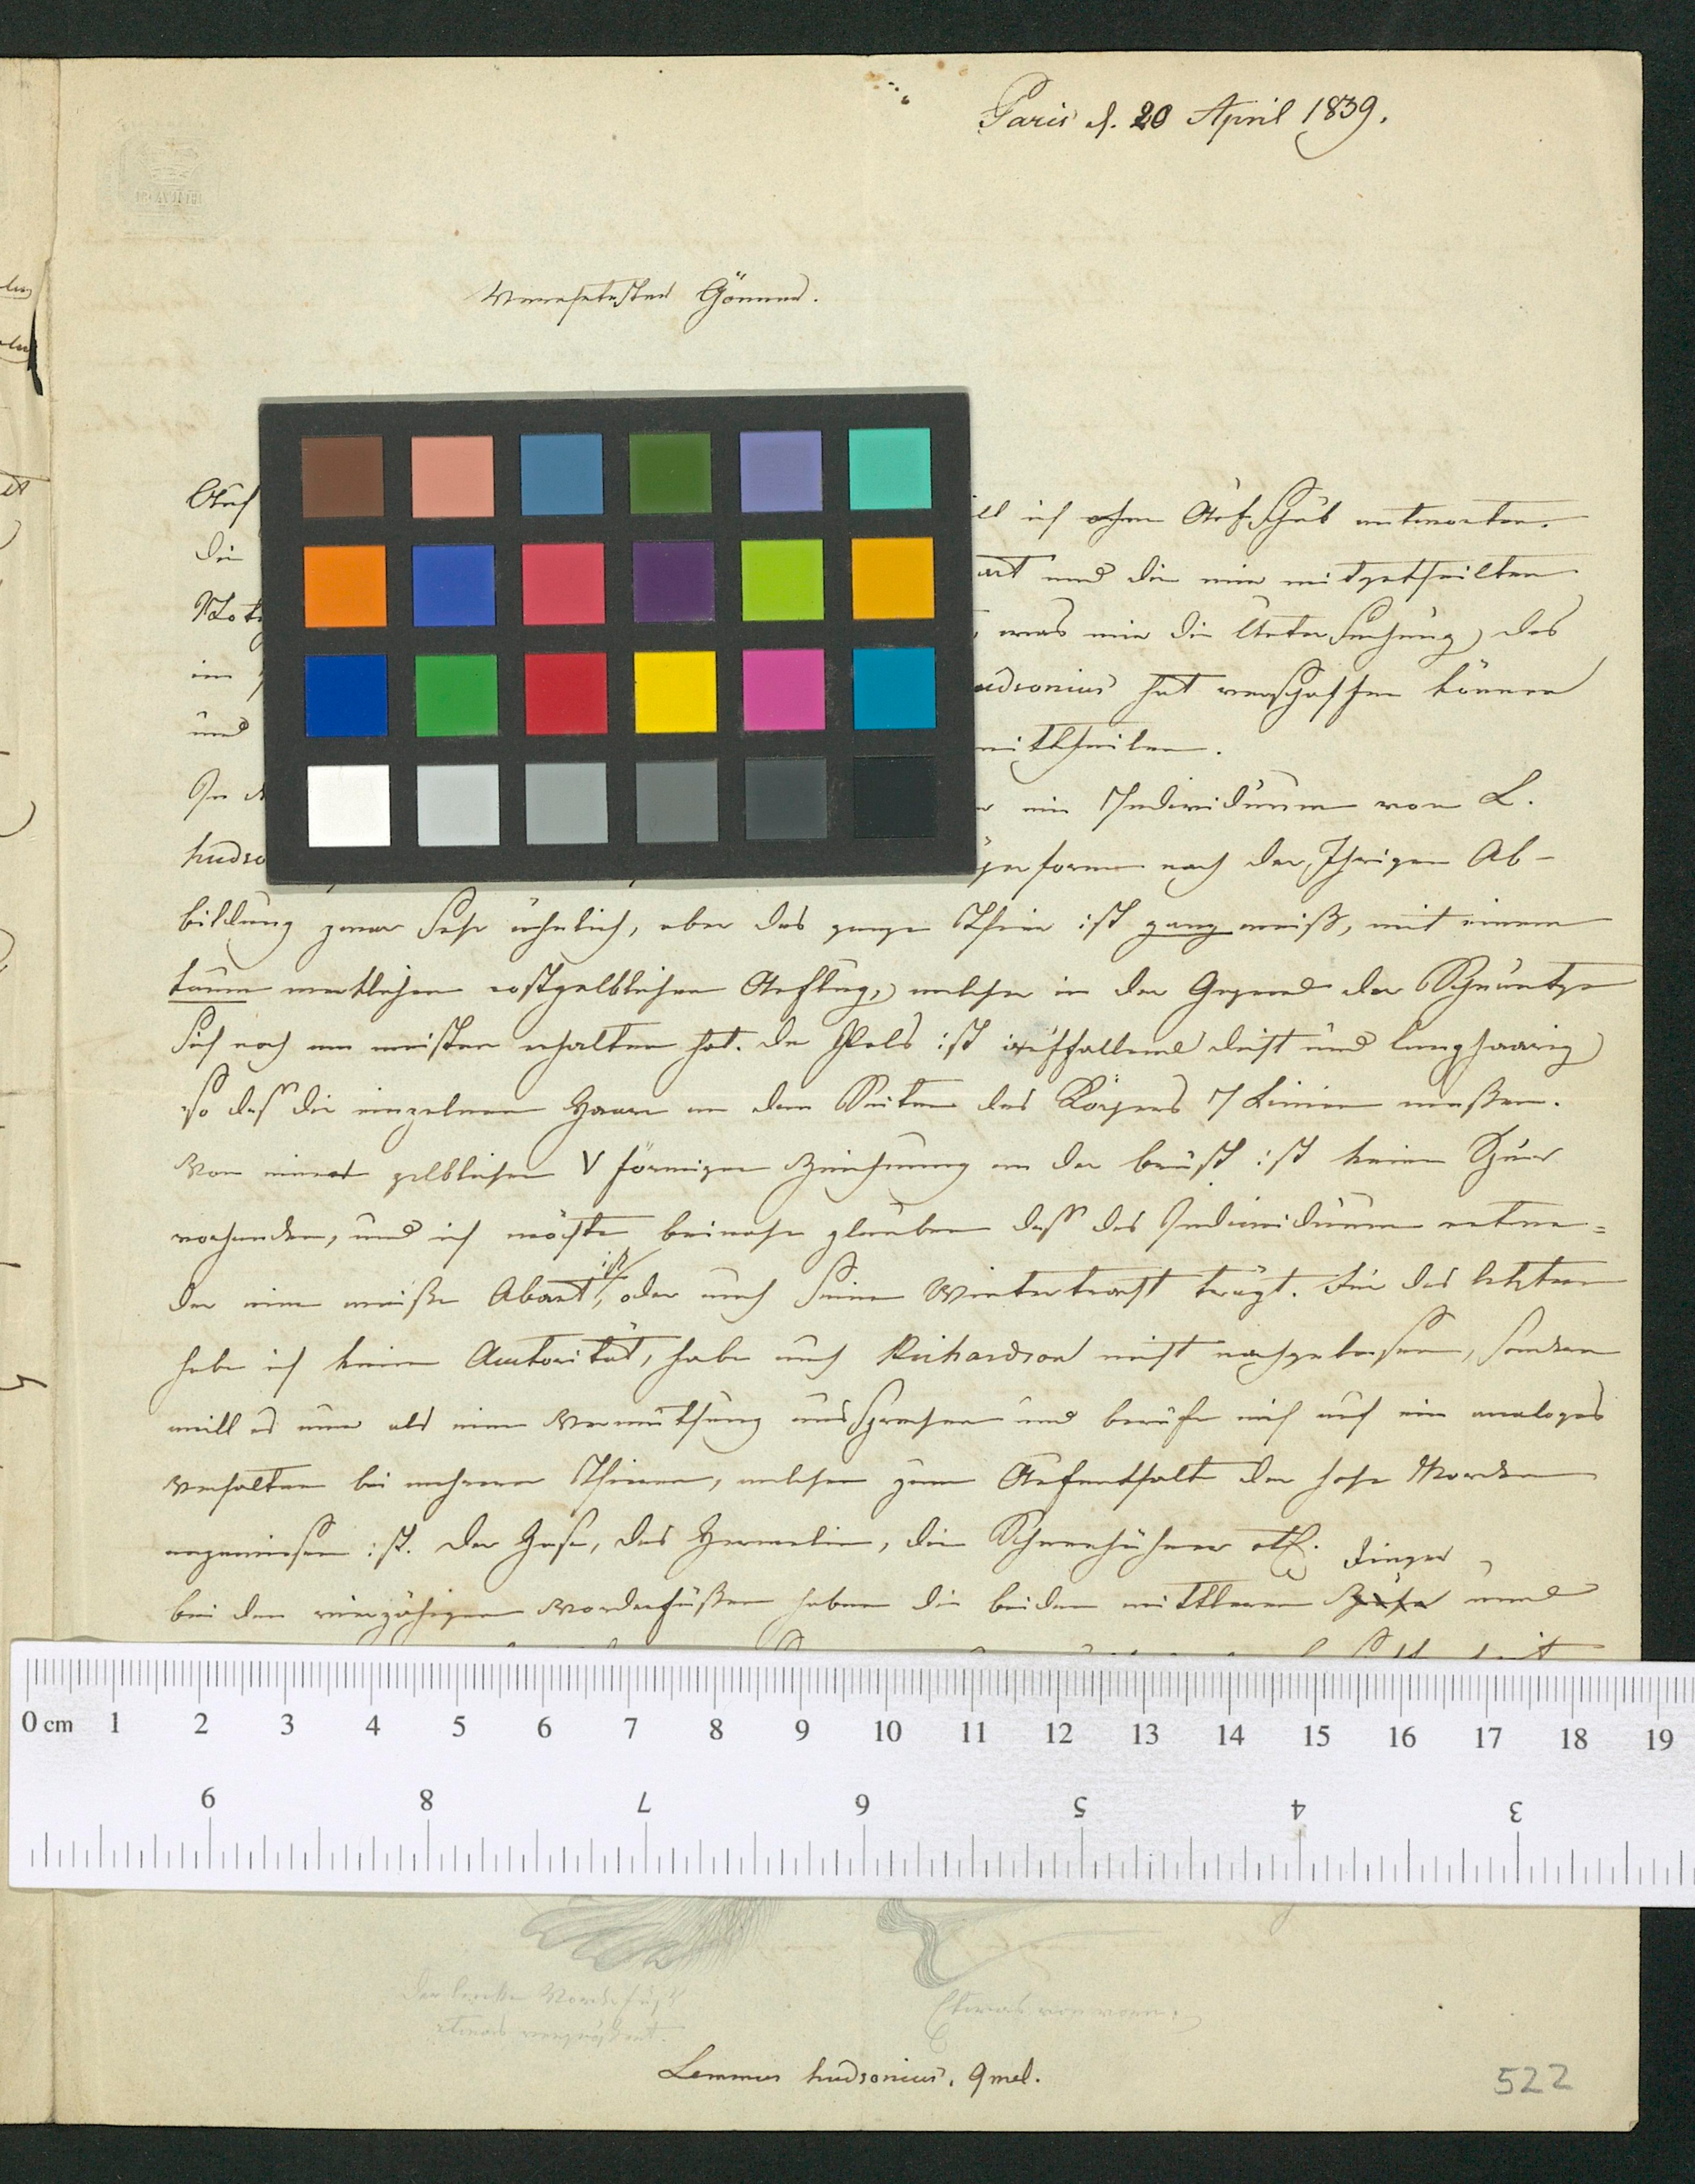 Paris d. 20 April 1839.
Verehrtester Gönner.
Auf ill ich ohne Aufschub antworten.
Die art und die mir mitgetheilten
Noti was mir die Untersuchung des
im udsonius hat verschaffen können
und mittheilen.
In d ein Individuum von L.
hudso perform nach der Ihrigen Ab-
bildung zwar sehr ähnlich, aber das ganze Thier ist ganz weiß, mit einem
kaum merklichen rostgelblichen Anflug, welcher in der Gegend der Schnautze
sich noch am meisten erhalten hat. Der Pelz ist auffallend dicht und langhaarig
so daß die einzelnen Haare an den Seiten des Körpers 7 Linien maßen.
Von einer gelblichen V förmigen Zeichnung an der brust ist keine Spur
vorhanden, und ich möchte beinahe glauben daß das Individuum entwe=
der eine weiße Abart ist, oder auch seine Wintertracht trägt. Für das letztere
habe ich keine Autorität, habe auch Richardson nicht nachgelesen, sondern
will es nur als eine Vermuthung aussprechen und berufe mich auf ein analoges
Verhalten bei mehreren Thieren, welchen zum Aufenthalt der hohe Norden
angewiesen ist. Der Hase, das Hermelin, die Schneehühner etc.
bei den vierzähigen Vorderfüßen haben die beiden mittleren Finger
0 cm 1 2 3 4 5 6 7 8 9 10 11 12 13 14 15 16 17 18 19
9 8 7 6 5 4 3
Der linke Vorderfuß
etwas vergrößert.
Etwas von vorn.
Lemmus hudsonius, Gmel.
522